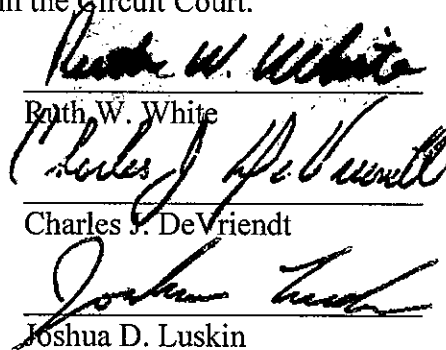 in the Circuit Court.
Ruth W. White
Ruth W. White
Charles J DeVriendt
Charles J. DeVriendt
Joshua Luskin
Joshua D. Luskin